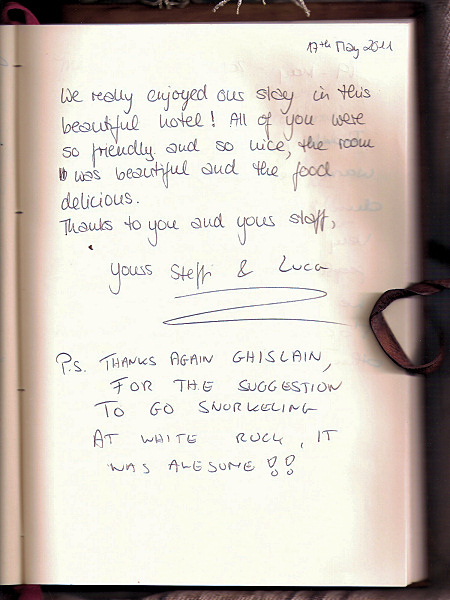 17th May 2011
We really enjoyed our stay in this
beautiful hotel! All of you were
so friendly and so nice, the room
was beautiful and the food
delicious.
Thanks to you and your staff,
yours Steffi & Luca
P.S. THANKS AGAIN GHISLAIN,
FOR THE SUGGESTION
TO GO SNORKELING
AT WHITE ROCK, IT
WAS AWESOME !!